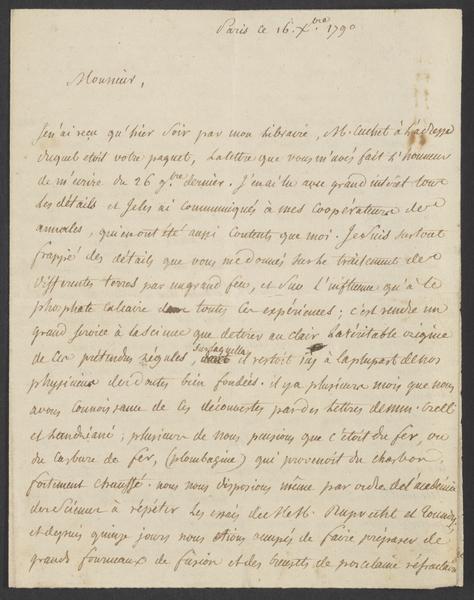 Paris ce 16. Xbre 1790
Monsieur,
Je n'ai reçu qu'hier soir par mon libraire, M. Cuchet à l'adresse
duquel etoit votre paquet, la lettre que vous m'avés fait l'honneur
de m'ecrire du 26 9bre dernier. J'en ai lu avec grand intérêt tous
les détails et je les ai communiqués à mes coopérateurs des
annales, qui en ont été aussi contents que moi. Je suis surtout
frappé des détails que vous me donnés sur le traitement de
differentes terres par un grand feu, et sur l'influence qu'a le
phosphate calcaire dans toutes ces expériences; c'est rendre un
grand service à la science que de tirer au clair la véritable origine
de ces prétendus régules, sur laquelle il restoit à la plupart de nos
physiciens des doutes bien fondées. il y a plusieurs mois que nous
avons connoissance de ces découvertes par des lettres de mm. Crell
et Landriani; plusieurs de nous pensions que c'étoit du fer, ou
du carbure de fer, (plombagine) qui provenoit du charbon
fortement chauffé. nous nous disposions même par ordre de l'académie
des sciences à répéter les essais de MM. Ruprecht et Tondy,
et depuis quinze jours nous étions occupés de faire préparer de
grands fourneaux de fusion et des creusets de porcelaine réfractaire